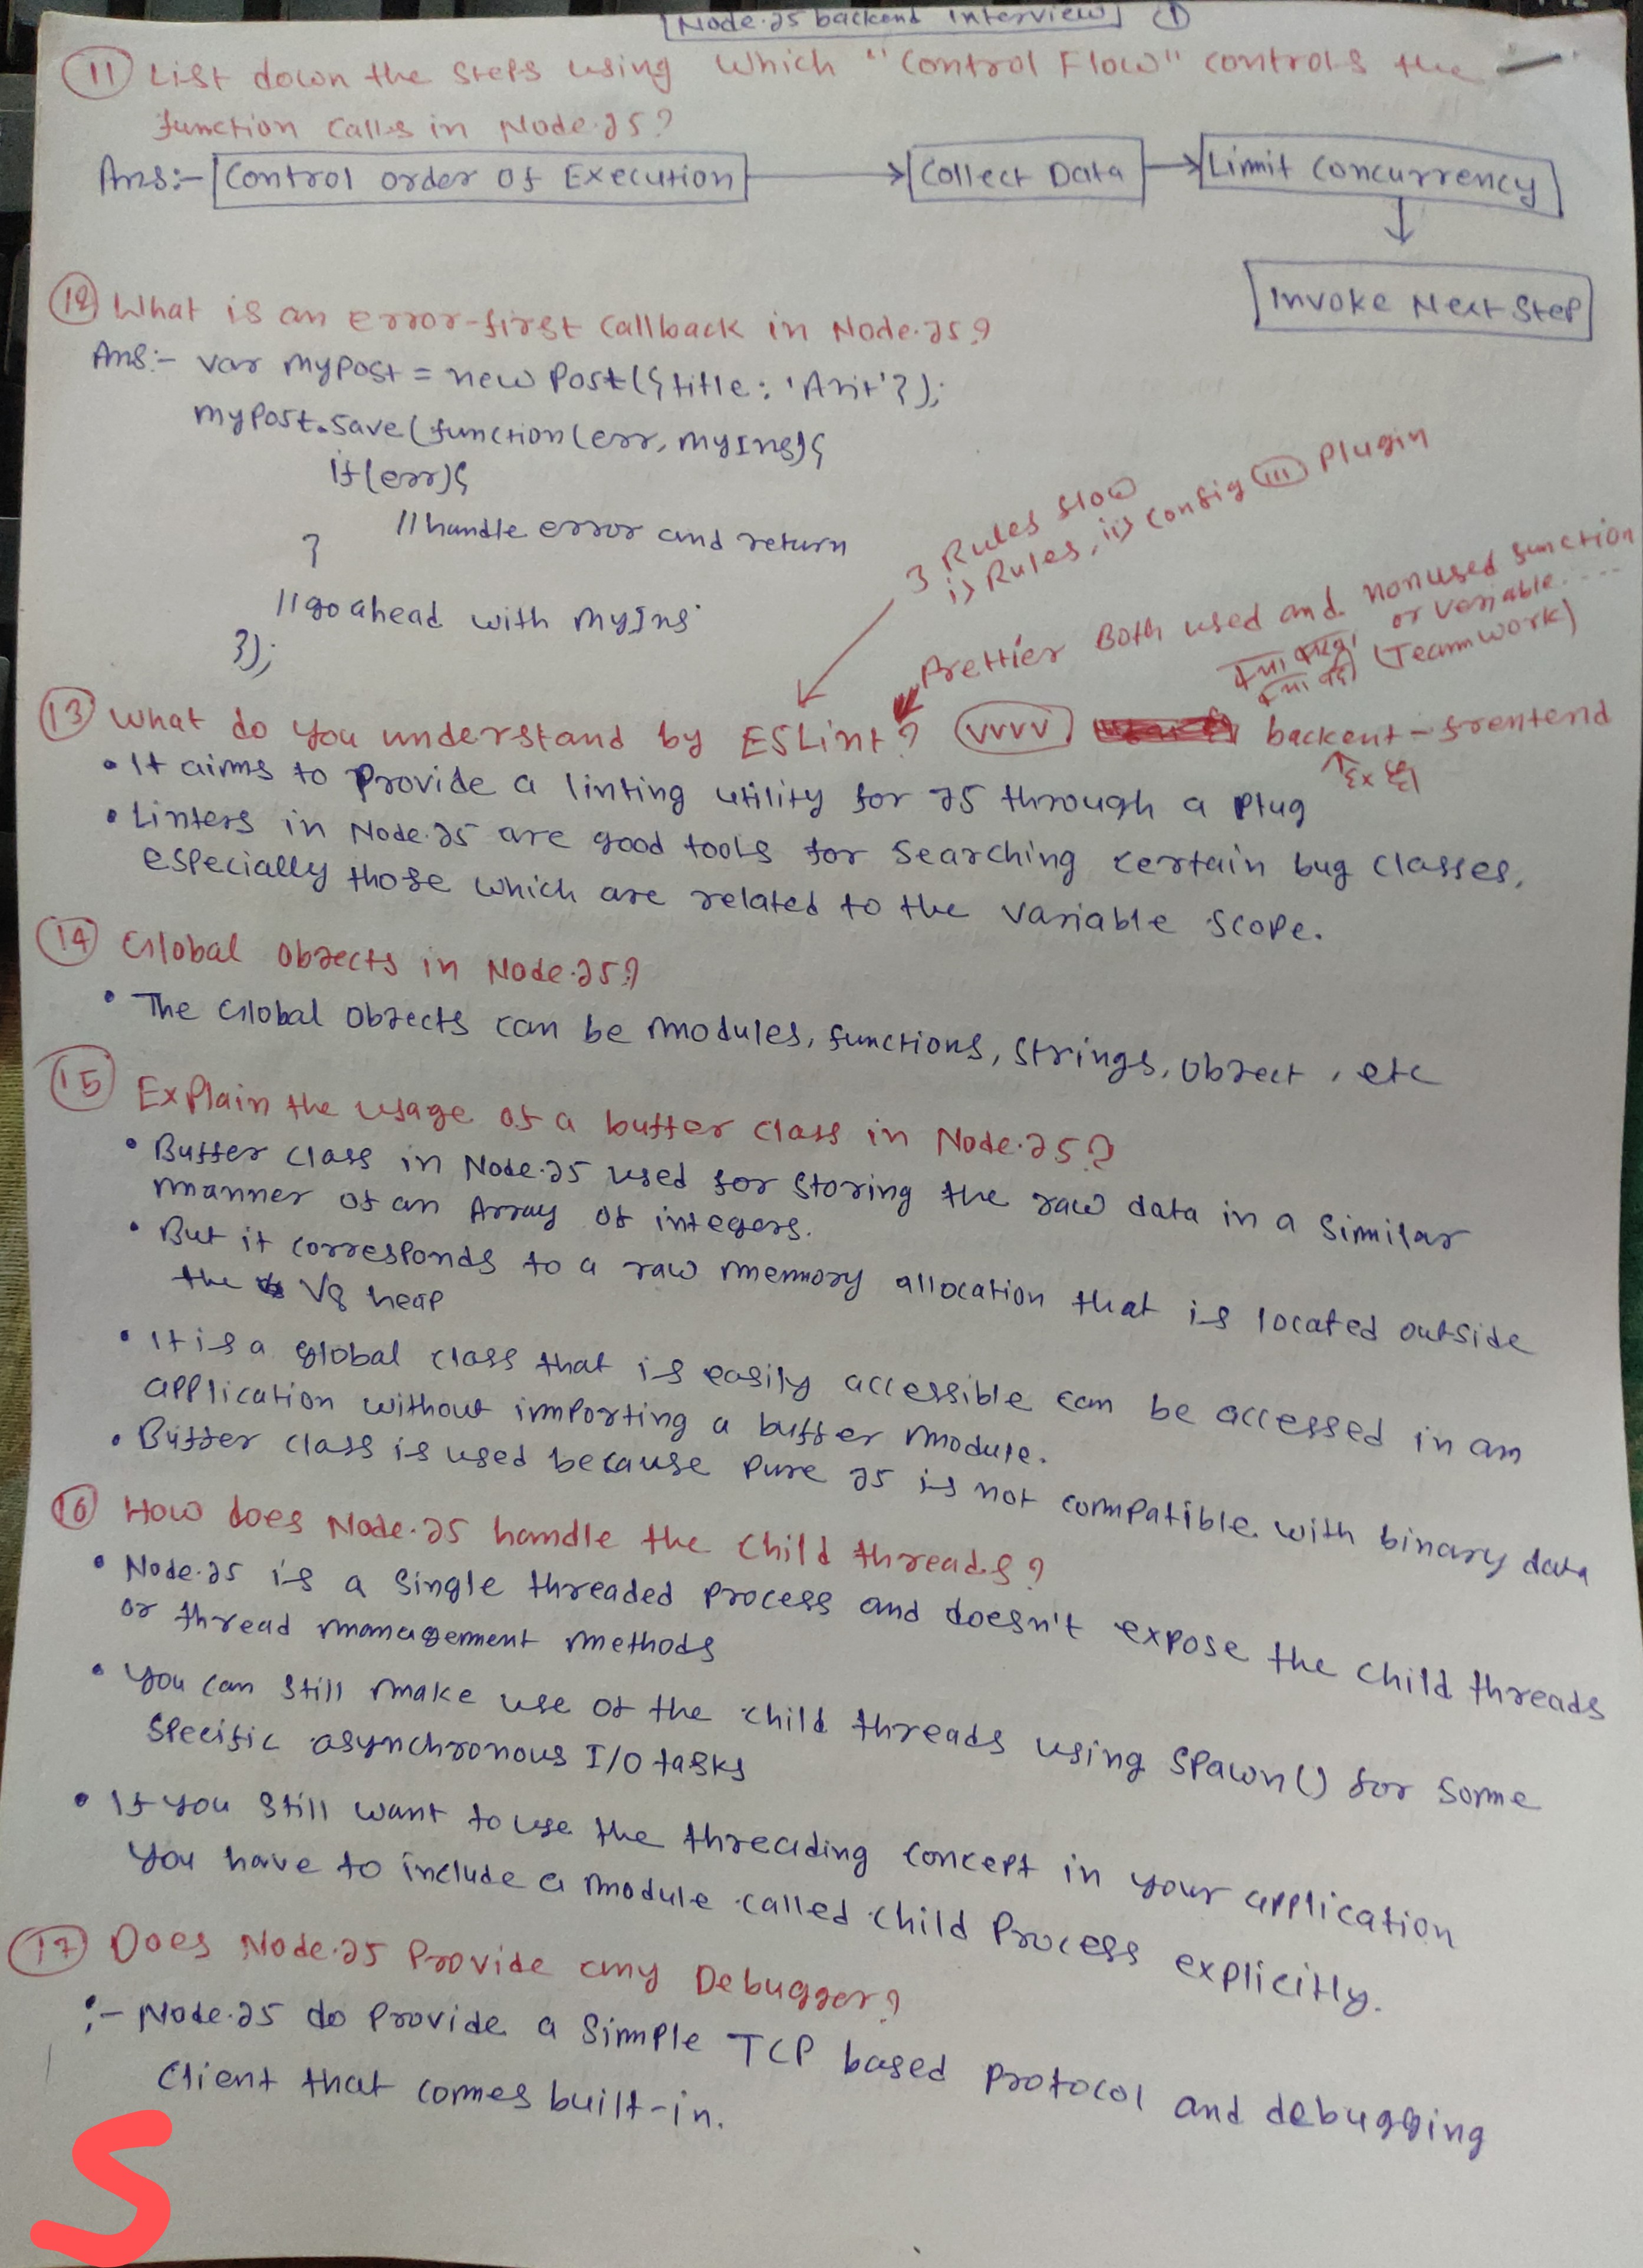 Node.JS backend interview ①
⑪ List down the steps using which "Control Flow" controls the
function calls in Node.JS?
Ans:- Control order of Execution → Collect Data → Limit Concurrency
↓
Invoke Next Step
⑫ What is an error-first callback in Node.JS?
Ans:- var mypost = new Post({title: 'Arit'});
mypost.save(function(err, myIns){
if(err){
//handle error and return
}
//go ahead with myIns
});
3 Rules slow
i) Rules, ii) config (iii) Plugin
Prettier Both used and nonused function
or variable....
(Team work)
⑬ What do you understand by ESLint? (VVVV) backent - frentend
• It aims to provide a linting utility for JS through a plug
• Linters in Node.JS are good tools for searching certain bug classes,
especially those which are related to the variable scope.
⑭ Global objects in Node.JS?
• The Global objects can be modules, functions, strings, object, etc
⑮ Explain the usage of a buffer class in Node.JS?
• Buffer class in Node.JS used for storing the raw data in a similar
manner of an Array of integers.
• But it corresponds to a raw memory allocation that is located outside
the V8 heap
• It is a global class that is easily accessible can be accessed in an
application without importing a buffer module.
• Buffer class is used because pure JS is not compatible with binary data
⑯ How does Node.JS handle the child threads?
• Node.JS is a single threaded process and doesn't expose the child threads
or thread management methods
• You can still make use of the child threads using spawn() for some
specific asynchronous I/O tasks
• If you still want to use the threading concept in your application
you have to include a module called child process explicitly.
⑰ Does Node.JS Provide any Debugger?
:- Node.JS do provide a simple TCP based protocol and debugging
client that comes built-in.
S